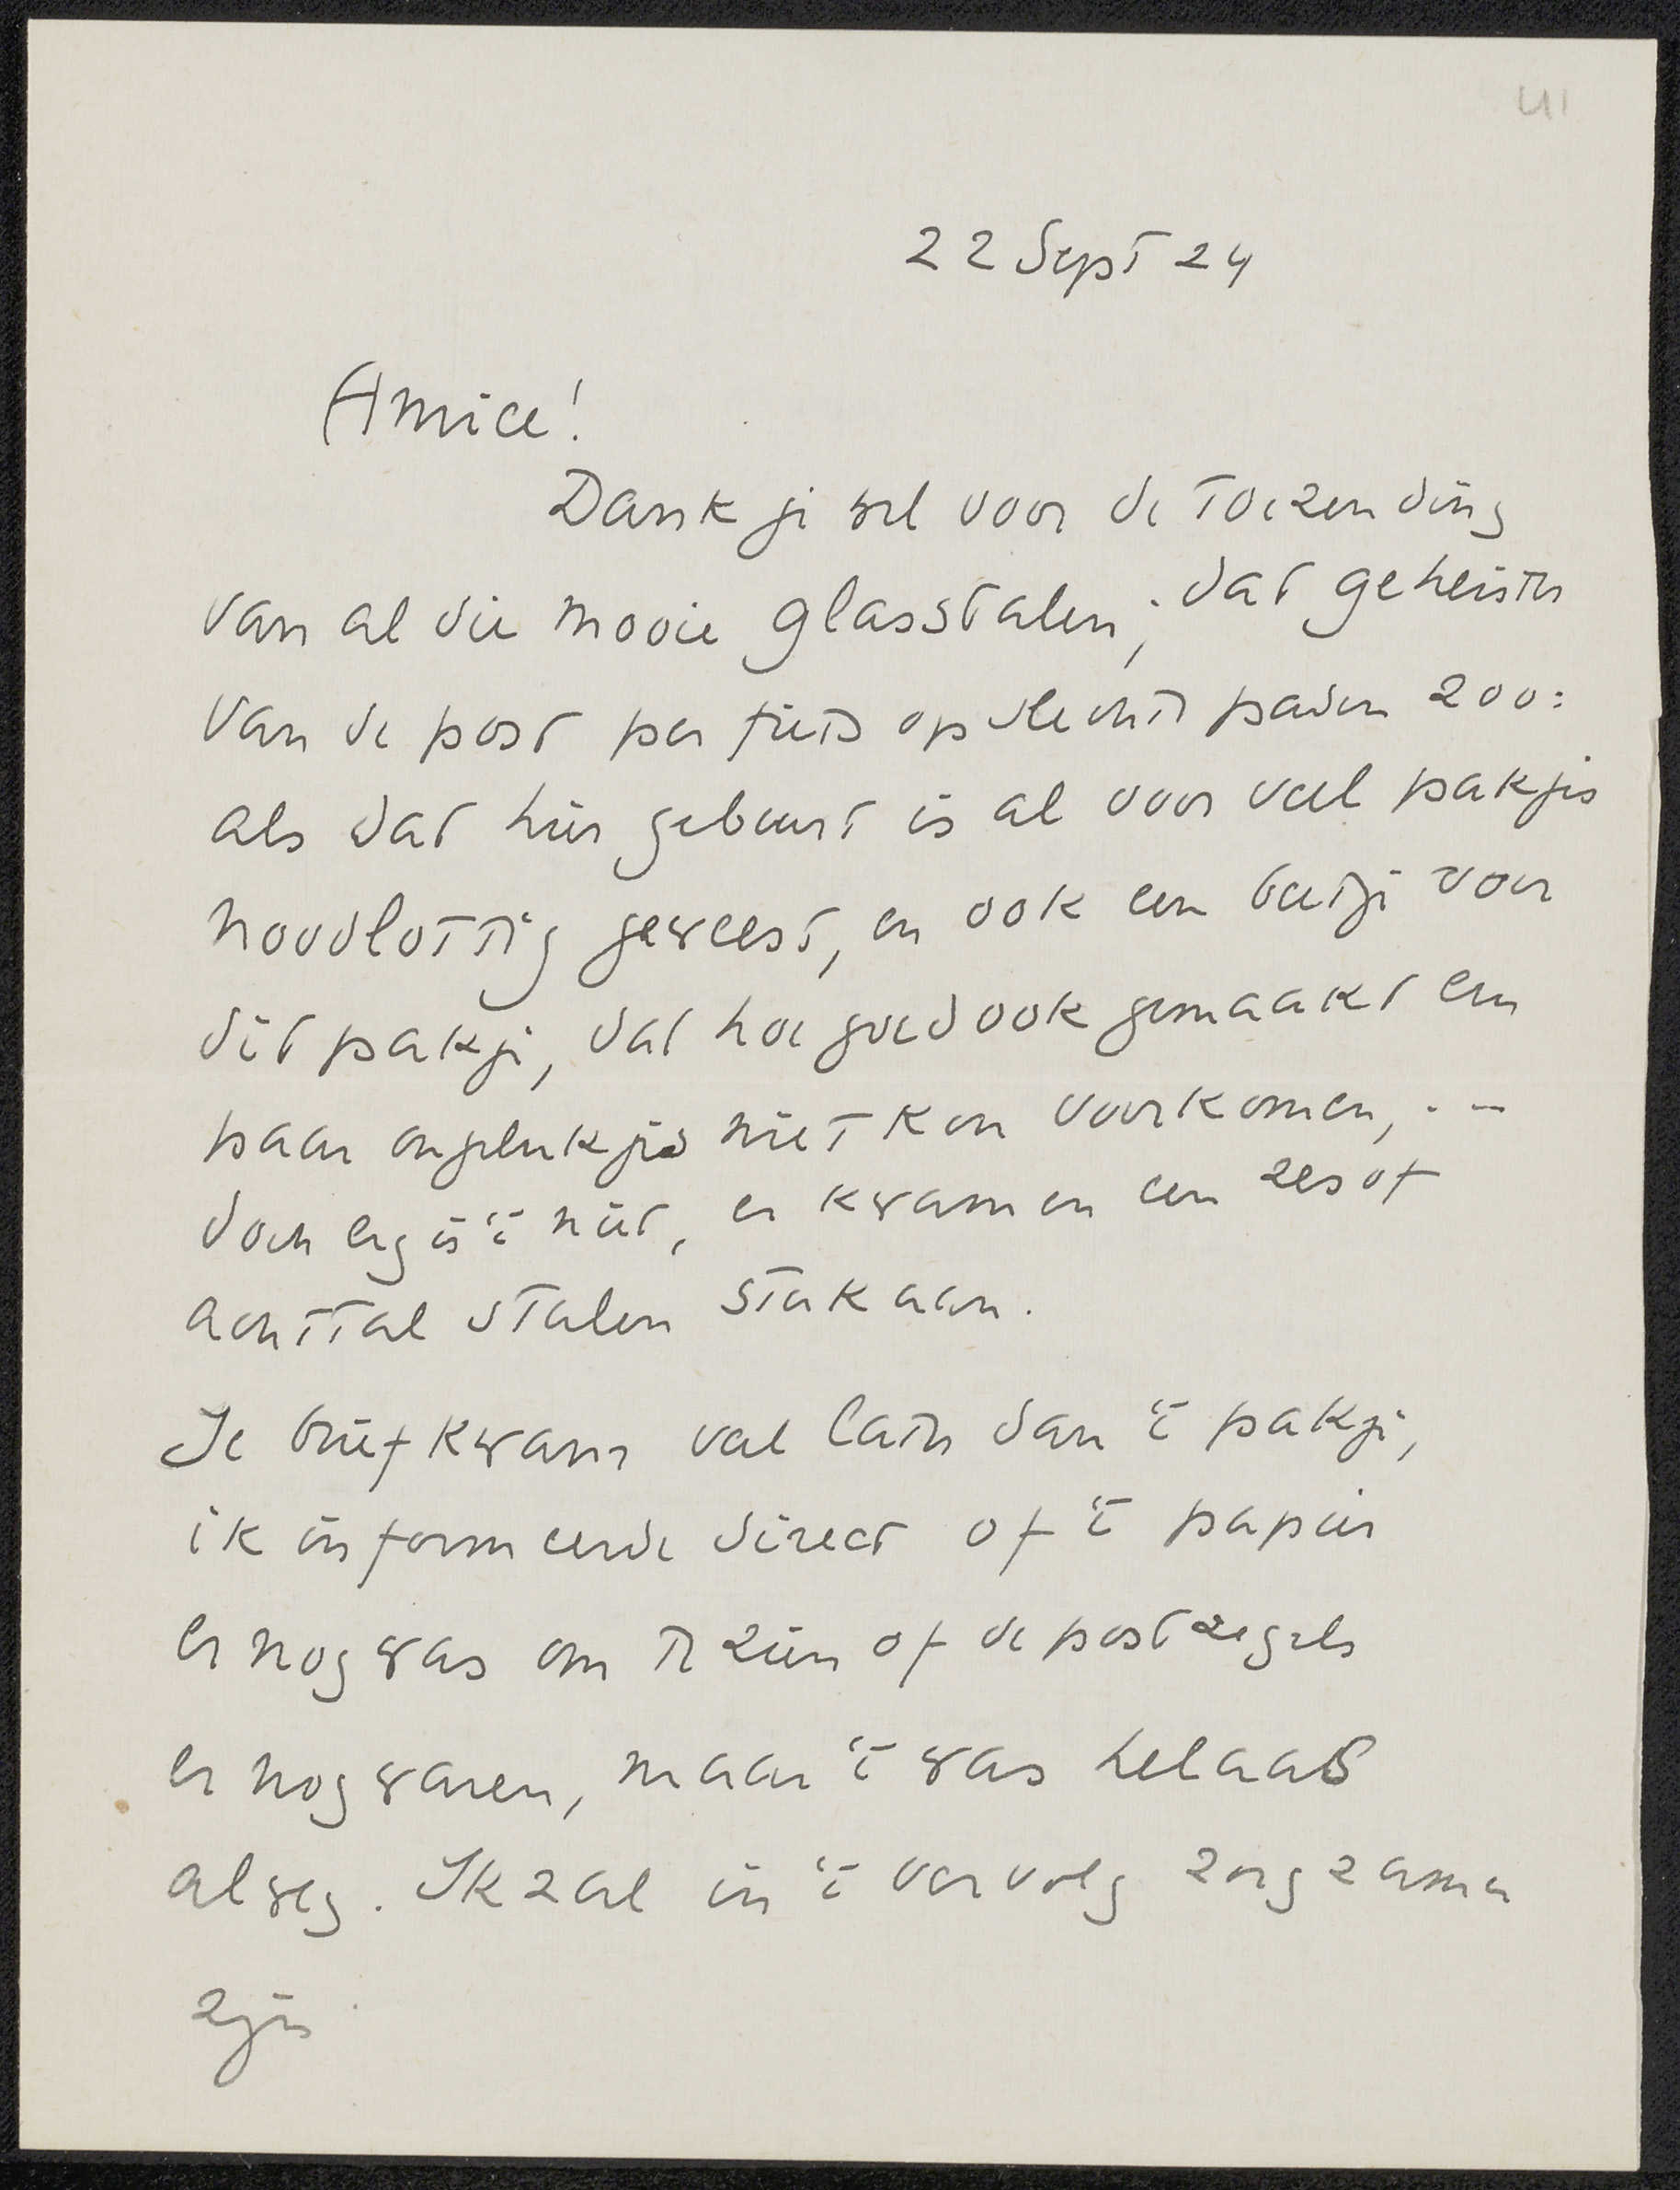 41
22 Sept 24
Amice!
Dank je wel voor de toezending
van al die mooie glasstalen; dat geheister
van de post per fiets op slechte paden zoo:
als dat hier gebeurt is al voor veel pakjes
noodlottig geweest, en ook een beetje voor
dit pakje, dat hoe goed ook gemaakt een
paar ongelukjes niet kon voorkomen, . —
doch erg is 't niet, er kwamen een zes of
achttal stalen stuk aan.
Je brief kwam veel later dan 't pakje,
ik informeerde direct of 't papier
er nog was om te zien of de postzegels
er nog waren, maar 't was helaas
al weg. Ik zal in 't vervolg zorgzamer
zijn